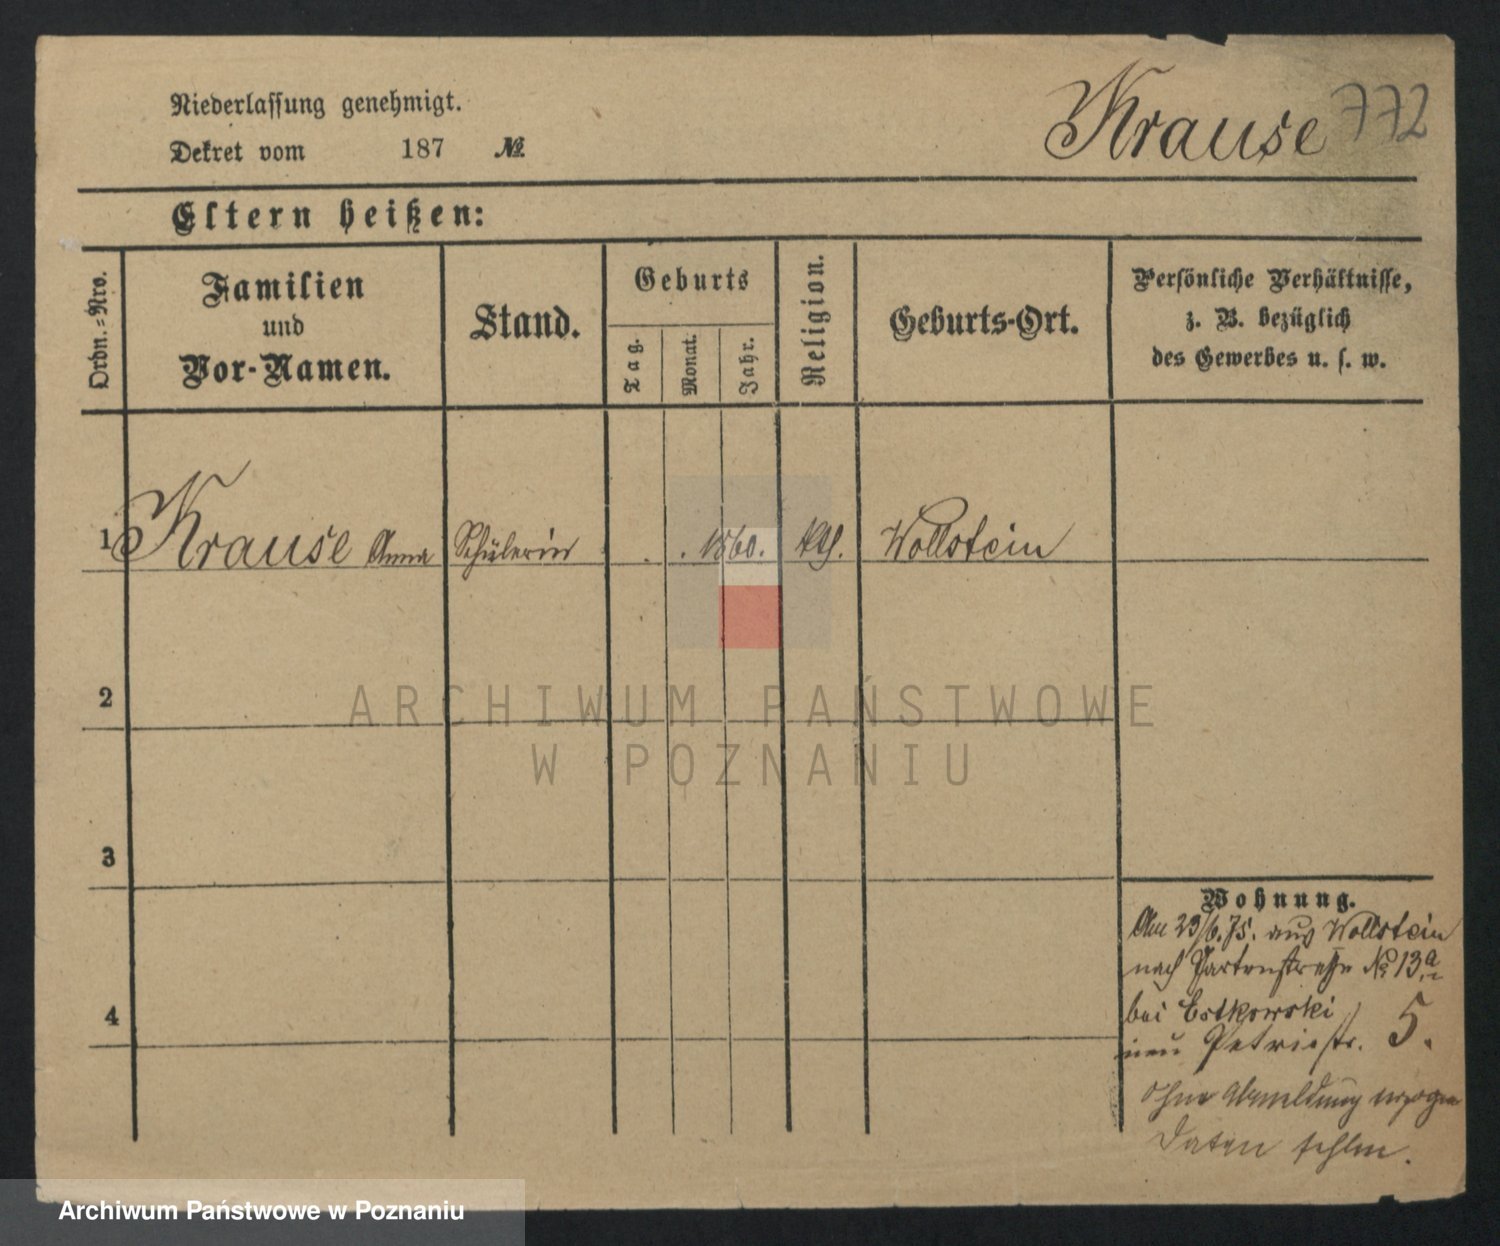 Niederlassung genehmigt.
Krause 772
Dekret vom 187 №
Eltern heißen:
Ordn.=Nro.
Familien
und
Vor-Namen.
Stand.
Geburts
Tag.
Monat.
Jahr.
Religion.
Geburts-Ort.
Persönliche Verhältnisse,
z. B. bezüglich
des Gewerbes u. s. w.
1 Krause Anna Schülerin 1860. kth. Wollstein
2
ARCHIWUM PAŃSTWOWE
W POZNANIU
3
4
Wohnung.
Am 23/6.75. aus Wollstein
nach Gartenstrasse № 13a
bei Estkowski
neu Petristr. 5.
Ohne Abmeldung verzogen
Daten fehlen.
Archiwum Państwowe w Poznaniu